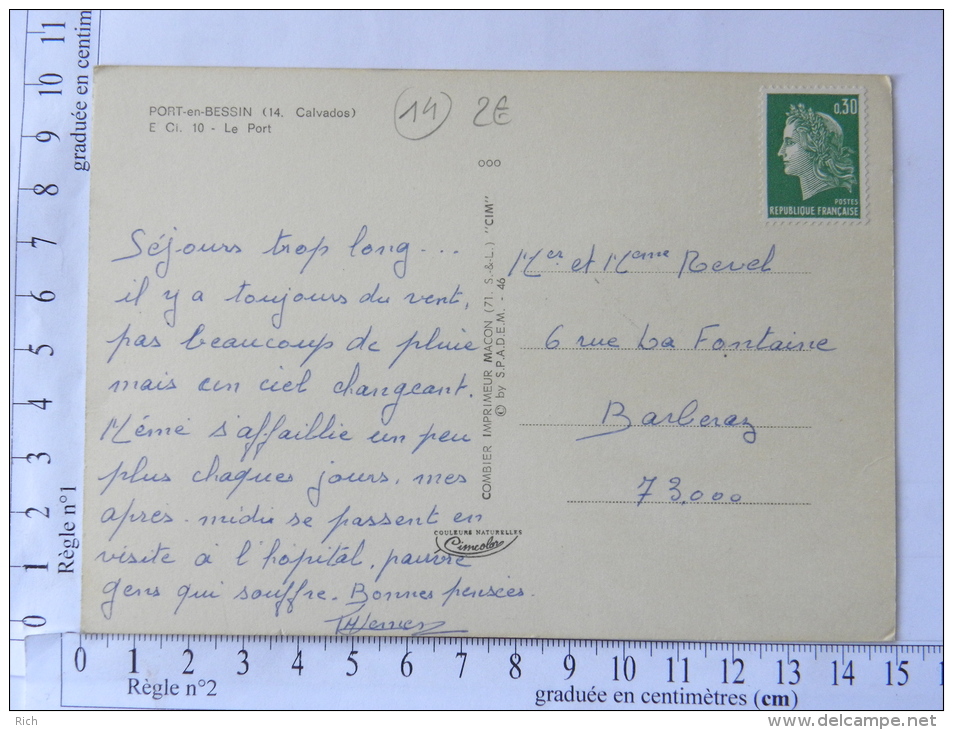 PORT-en-BESSIN (14. Calvados)
E Ci. 10 - Le Port
14 2€
0,30
POSTES
REPUBLIQUE FRANÇAISE
ooo
Séjours trop long...
il y a toujours du vent,
pas beaucoup de pluie
mais un ciel changeant.
Mémé s'affaillie un peu
plus chaques jours, mes
après-midis se passent en
visite à l'hôpital, pauvre
gens qui souffre. Bonnes pensées.
COMBIER IMPRIMEUR MACON (71. S.-&-L.) "CIM"
© by S.P.A.D.E.M. - 46
COULEURS NATURELLES
Cimcolor
Mer et Meme Revel
6 rue La Fontaine
Barberaz
73,000
graduée en centim
Règle n°1
0 1 2 3 4 5 6 7 8 9 10 11
0 1 2 3 4 5 6 7 8 9 10 11 12 13 14 15 1
Règle n°2
graduée en centimètres (cm)
Rich
http://www.delcampe.net